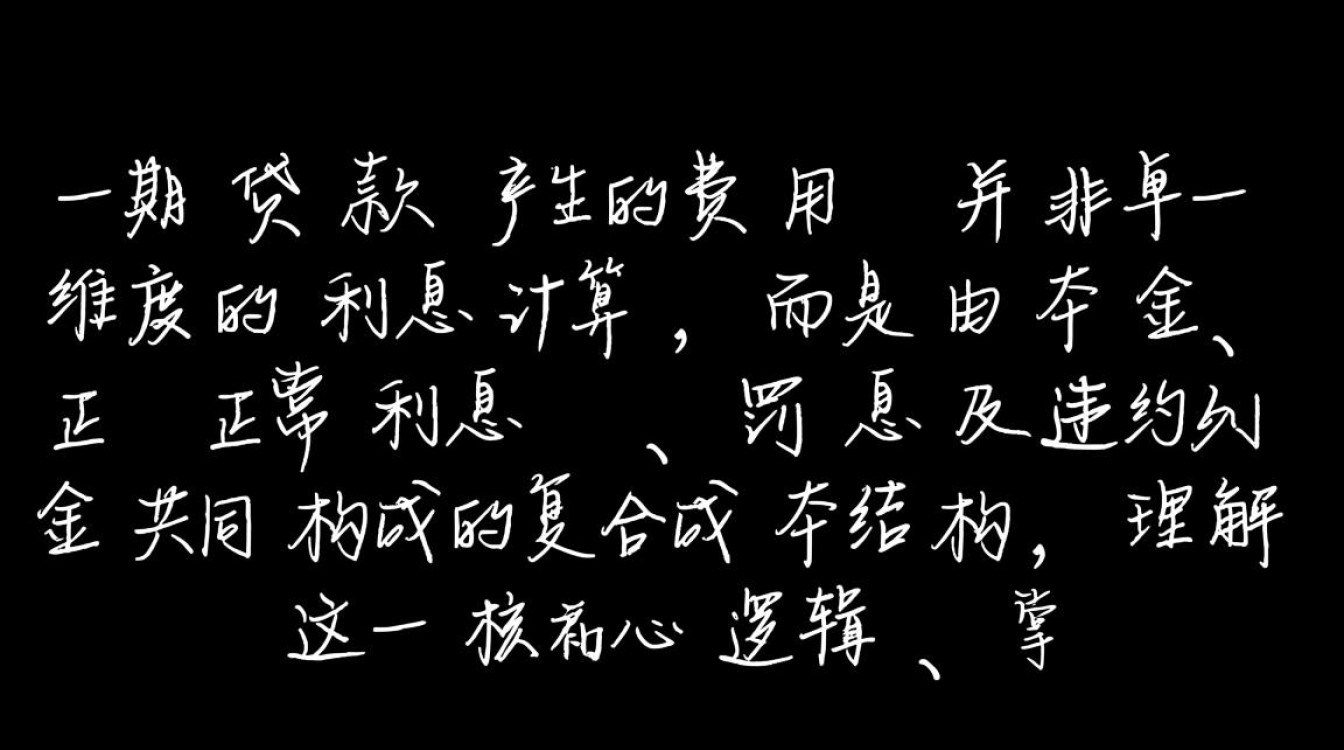 一期贷款产生的费用 并非单一
维度的利息计算，而是由本金、
正 正常利息 、罚息及违约
金共同构成的复合成本结构，理解
这一核心逻辑、掌